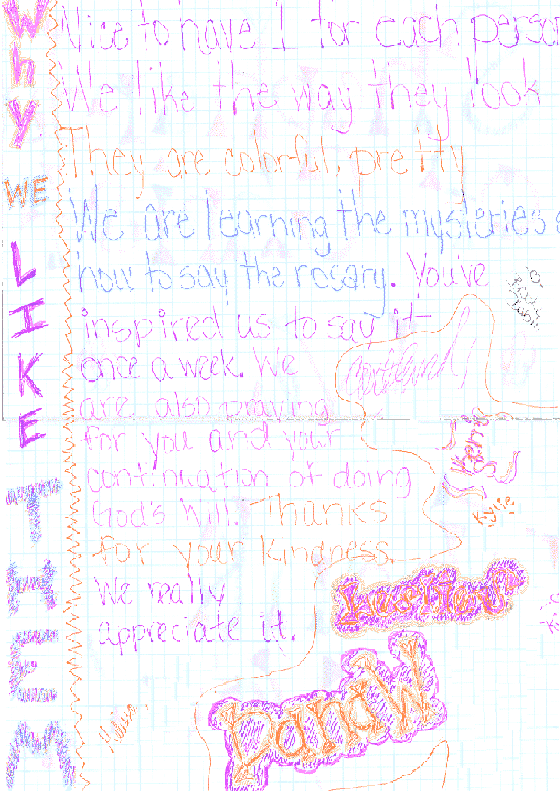 Why WE LIKE THEM
Nice to have 1 for each person
We like the way they look
They are colorful, pretty
We are learning the mysteries &
how to say the rosary. You've
inspired us to say it
once a week. We
are also praying
for you and your
continuation of doing
God's Will. Thanks
for your kindness.
We really
appreciate it.
Kyrie